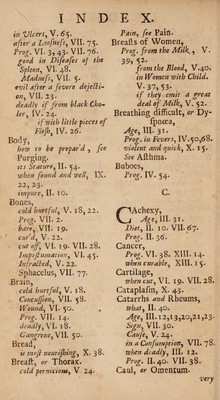 INDEX.
in Ulcers, V. 65.
after a Loosness, VII. 75.
Prog. VI. 3, 43. VII. 76.
good in Diseases of the
Spleen, VI. 48.
Madness, VII. 5.
evil after a severe dejecti-
on, VII. 23.
deadly if from black Cho-
ler, IV. 24.
if with little pieces of
Flesh, IV. 26.
Body,
how to be prepar'd, see
Purging.
its Stature, II. 54.
when sound and well, IX.
22, 23.
impure, II. 10.
Bones,
cold hurtful, V. 18, 22.
Prog. VII. 2.
bare, VII. 19.
cur'd, V. 22.
cut off, VI. 19. VII. 28.
Impostumation, VI. 45.
Infracted, V. 22.
Sphacelus, VII. 77.
Brain,
cold hurtful, V. 18.
Concussion, VII. 58.
Wound, VI. 50.
Prog. VII. 14.
deadly, VI. 18.
Gangrene, VII. 50.
Bread,
is most nourishing, X. 38.
Breast, or Thorax.
cold pernicious, V. 24.
Pain, see Pain.
Breasts of Women,
Prog. from the Milk, V.
39, 52.
from the Blood, V. 40.
in Women with Child.
V. 37, 53.
if they emit a great
deal of Milk, V. 52.
Breathing difficult, or Dy-
spnœa,
Age, III. 31.
Prog. in Fevers, IV. 50, 68.
violent and quick, X. 15.
See Asthma.
Buboes,
Prog. IV. 54.
C.
CAchexy,
Age, III. 31.
Diet, II. 10. VII. 67.
Prog. II. 36.
Cancer,
Prog. VI. 38. XIII. 14.
when curable, XIII. 15.
Cartilage,
when cut, VI. 19. VII. 28.
Cataplasm, X. 43.
Catarrhs and Rheums,
what, II. 40.
Age, III. 12, 13, 20, 21, 23.
Sign, VII. 30.
Cause, V. 24.
in a Consumption, VII. 78.
when deadly, III. 12.
Prog. II. 40. VII. 38.
Caul, or Omentum.
very